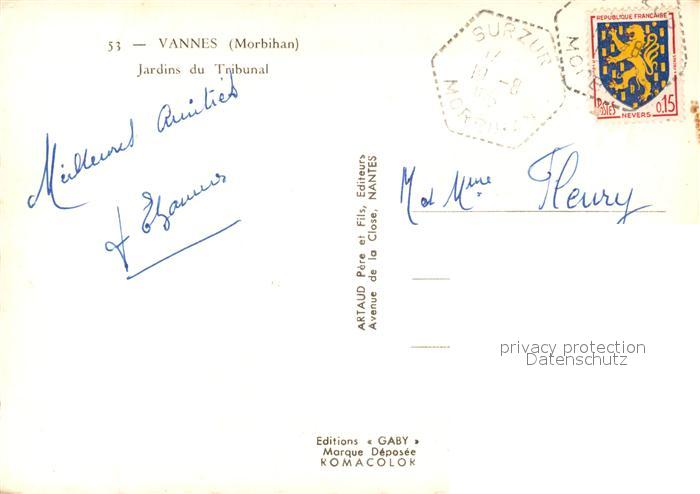 53 — VANNES (Morbihan)
Jardins du Tribunal
Meilleures Amitiés
ARTAUD Père et Fils, Editeurs
Avenue de la Close, NANTES
SURZUR
MORBIHAN
REPUBLIQUE FRANÇAISE
POSTES
0,15
NEVERS
M et Mme Fleury
privacy protection
Datenschutz
Editions « GABY »
Marque Déposée
ROMACOLOR